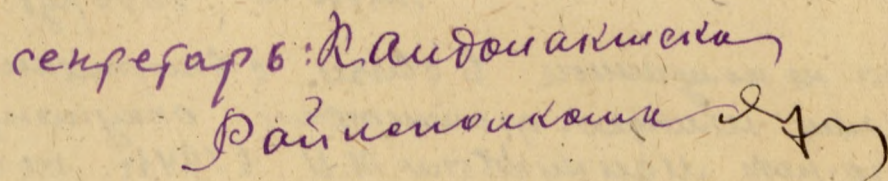 секретарь: Кандалакшска
Райисполкома